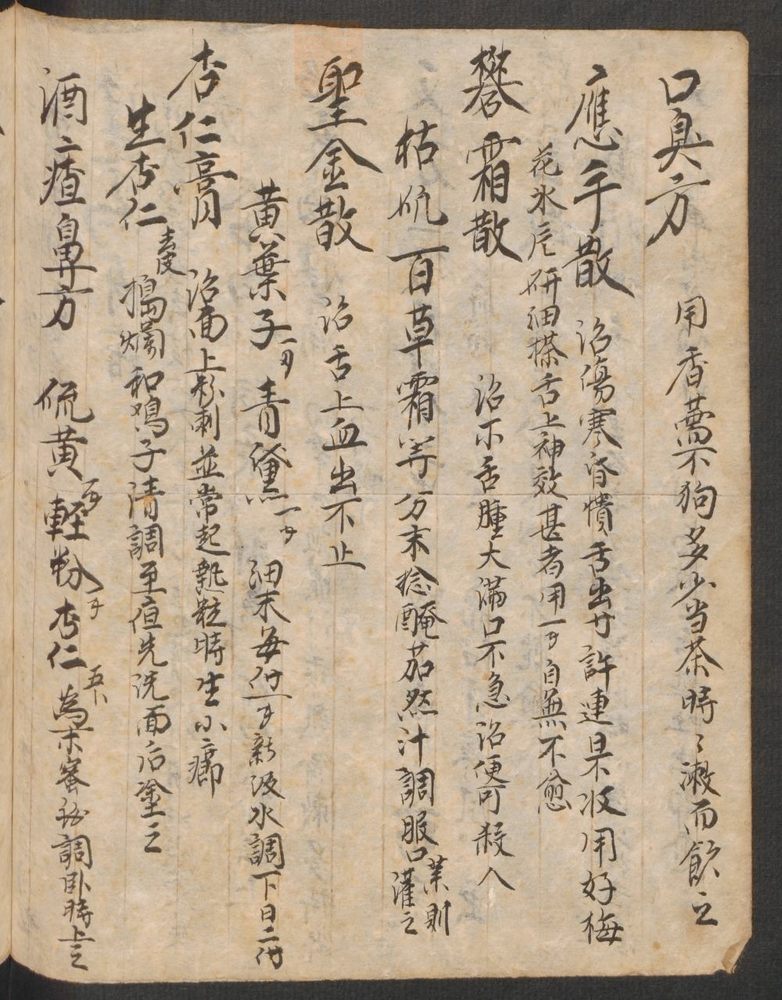 口臭方　用香薷不狗多少当茶時々漱而飲之
應手散　治傷寒昏憒舌出寸許連日不收用好梅
花氷片研細搽舌上神效甚者用一子自無不愈
礬霜散　治不舌腫大滿口不急治便可殺人
枯矾百草霜等分末捻醃茄然汁調服口業則灌之
聖金散　治舌上血出不止
黄葉子一子青黛一子細末每付一子新汲水調下日二付
杏仁膏　治面上粉刺並常起熱粒時生小癤
生杏仁去皮搗爛和鸡子清調至夜先洗面后塗之
酒渣鼻方　硫黄一子軽粉一子杏仁五个為末蜜調卧時上之